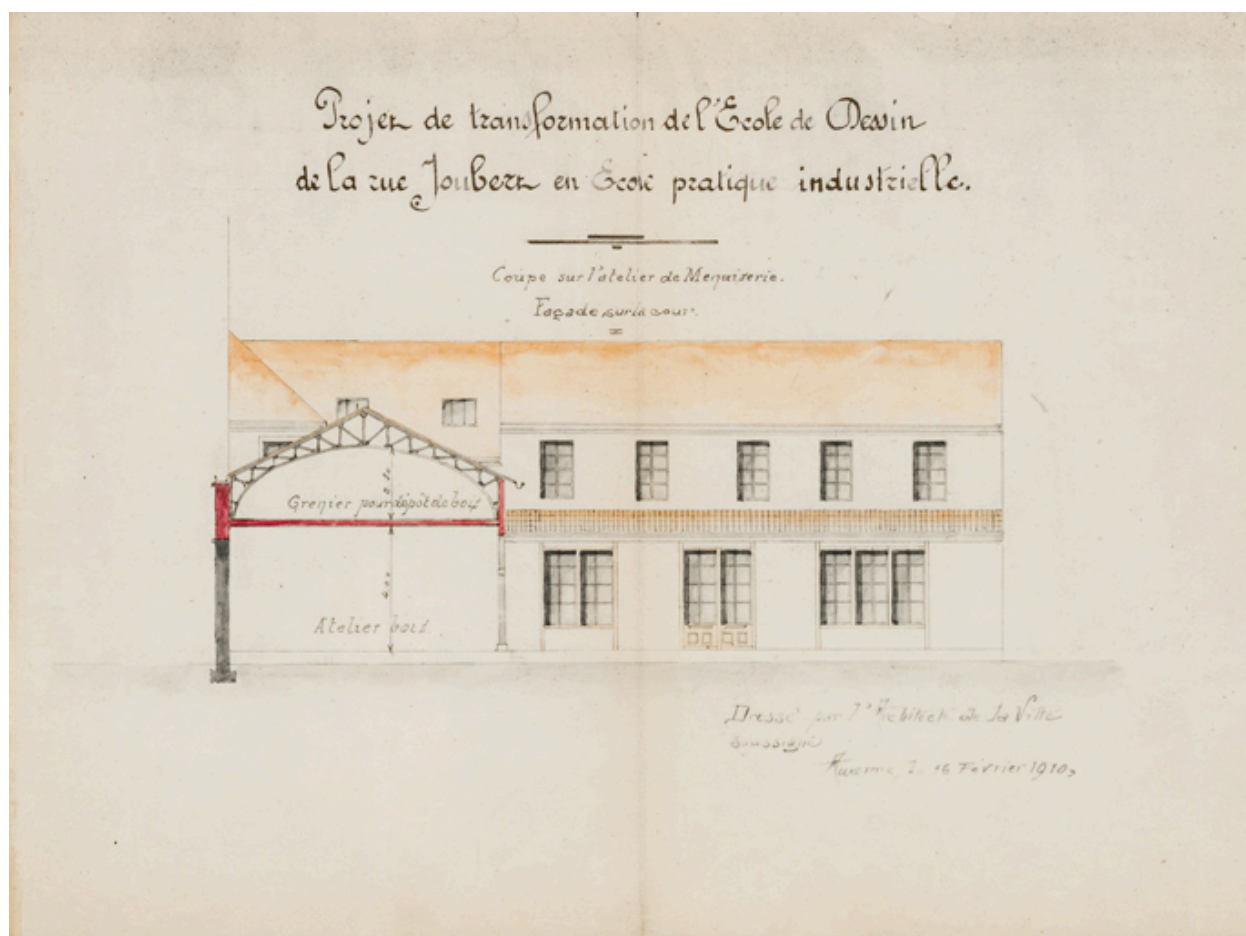 Projet de transformation de l'Ecole de Dessin
de la rue Joubert en Ecole pratique industrielle.
Coupe sur l'atelier de Menuiserie.
Façade sur la cour.
Grenier pour dépôt de bois
Atelier bois.
4.00
Dressé par l'Architecte de la Ville
soussigné
Auxerre, le 16 Février 1910,